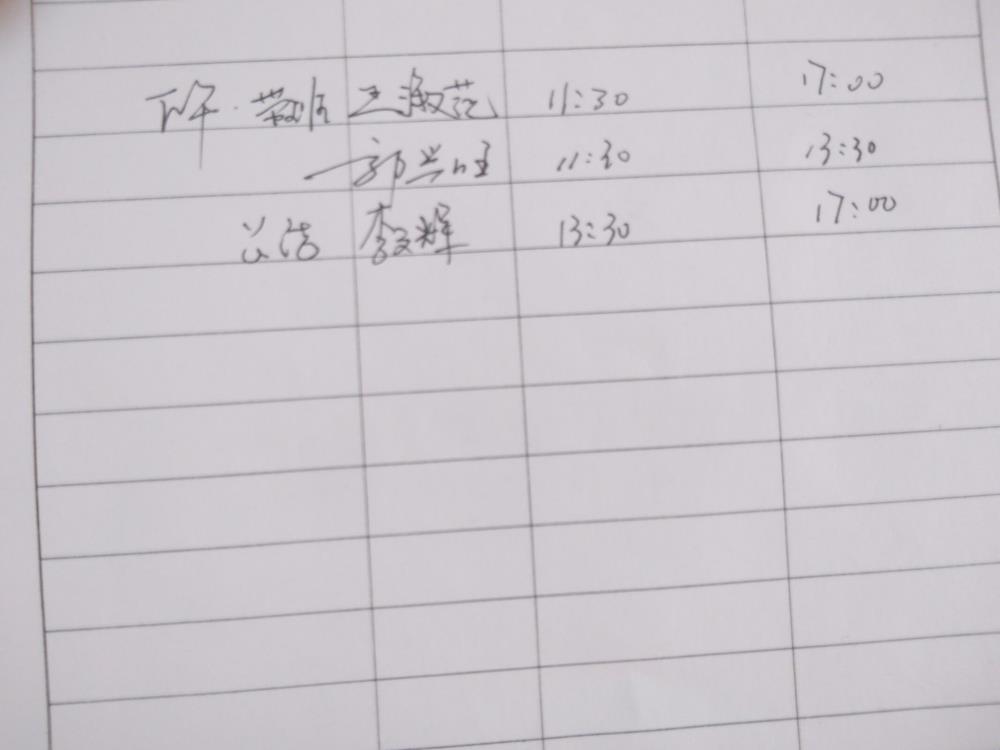 下午. 带班 王淑范 11:30 17:00
郭兴旺 11:30 13:30
李文辉 13:30 17:00